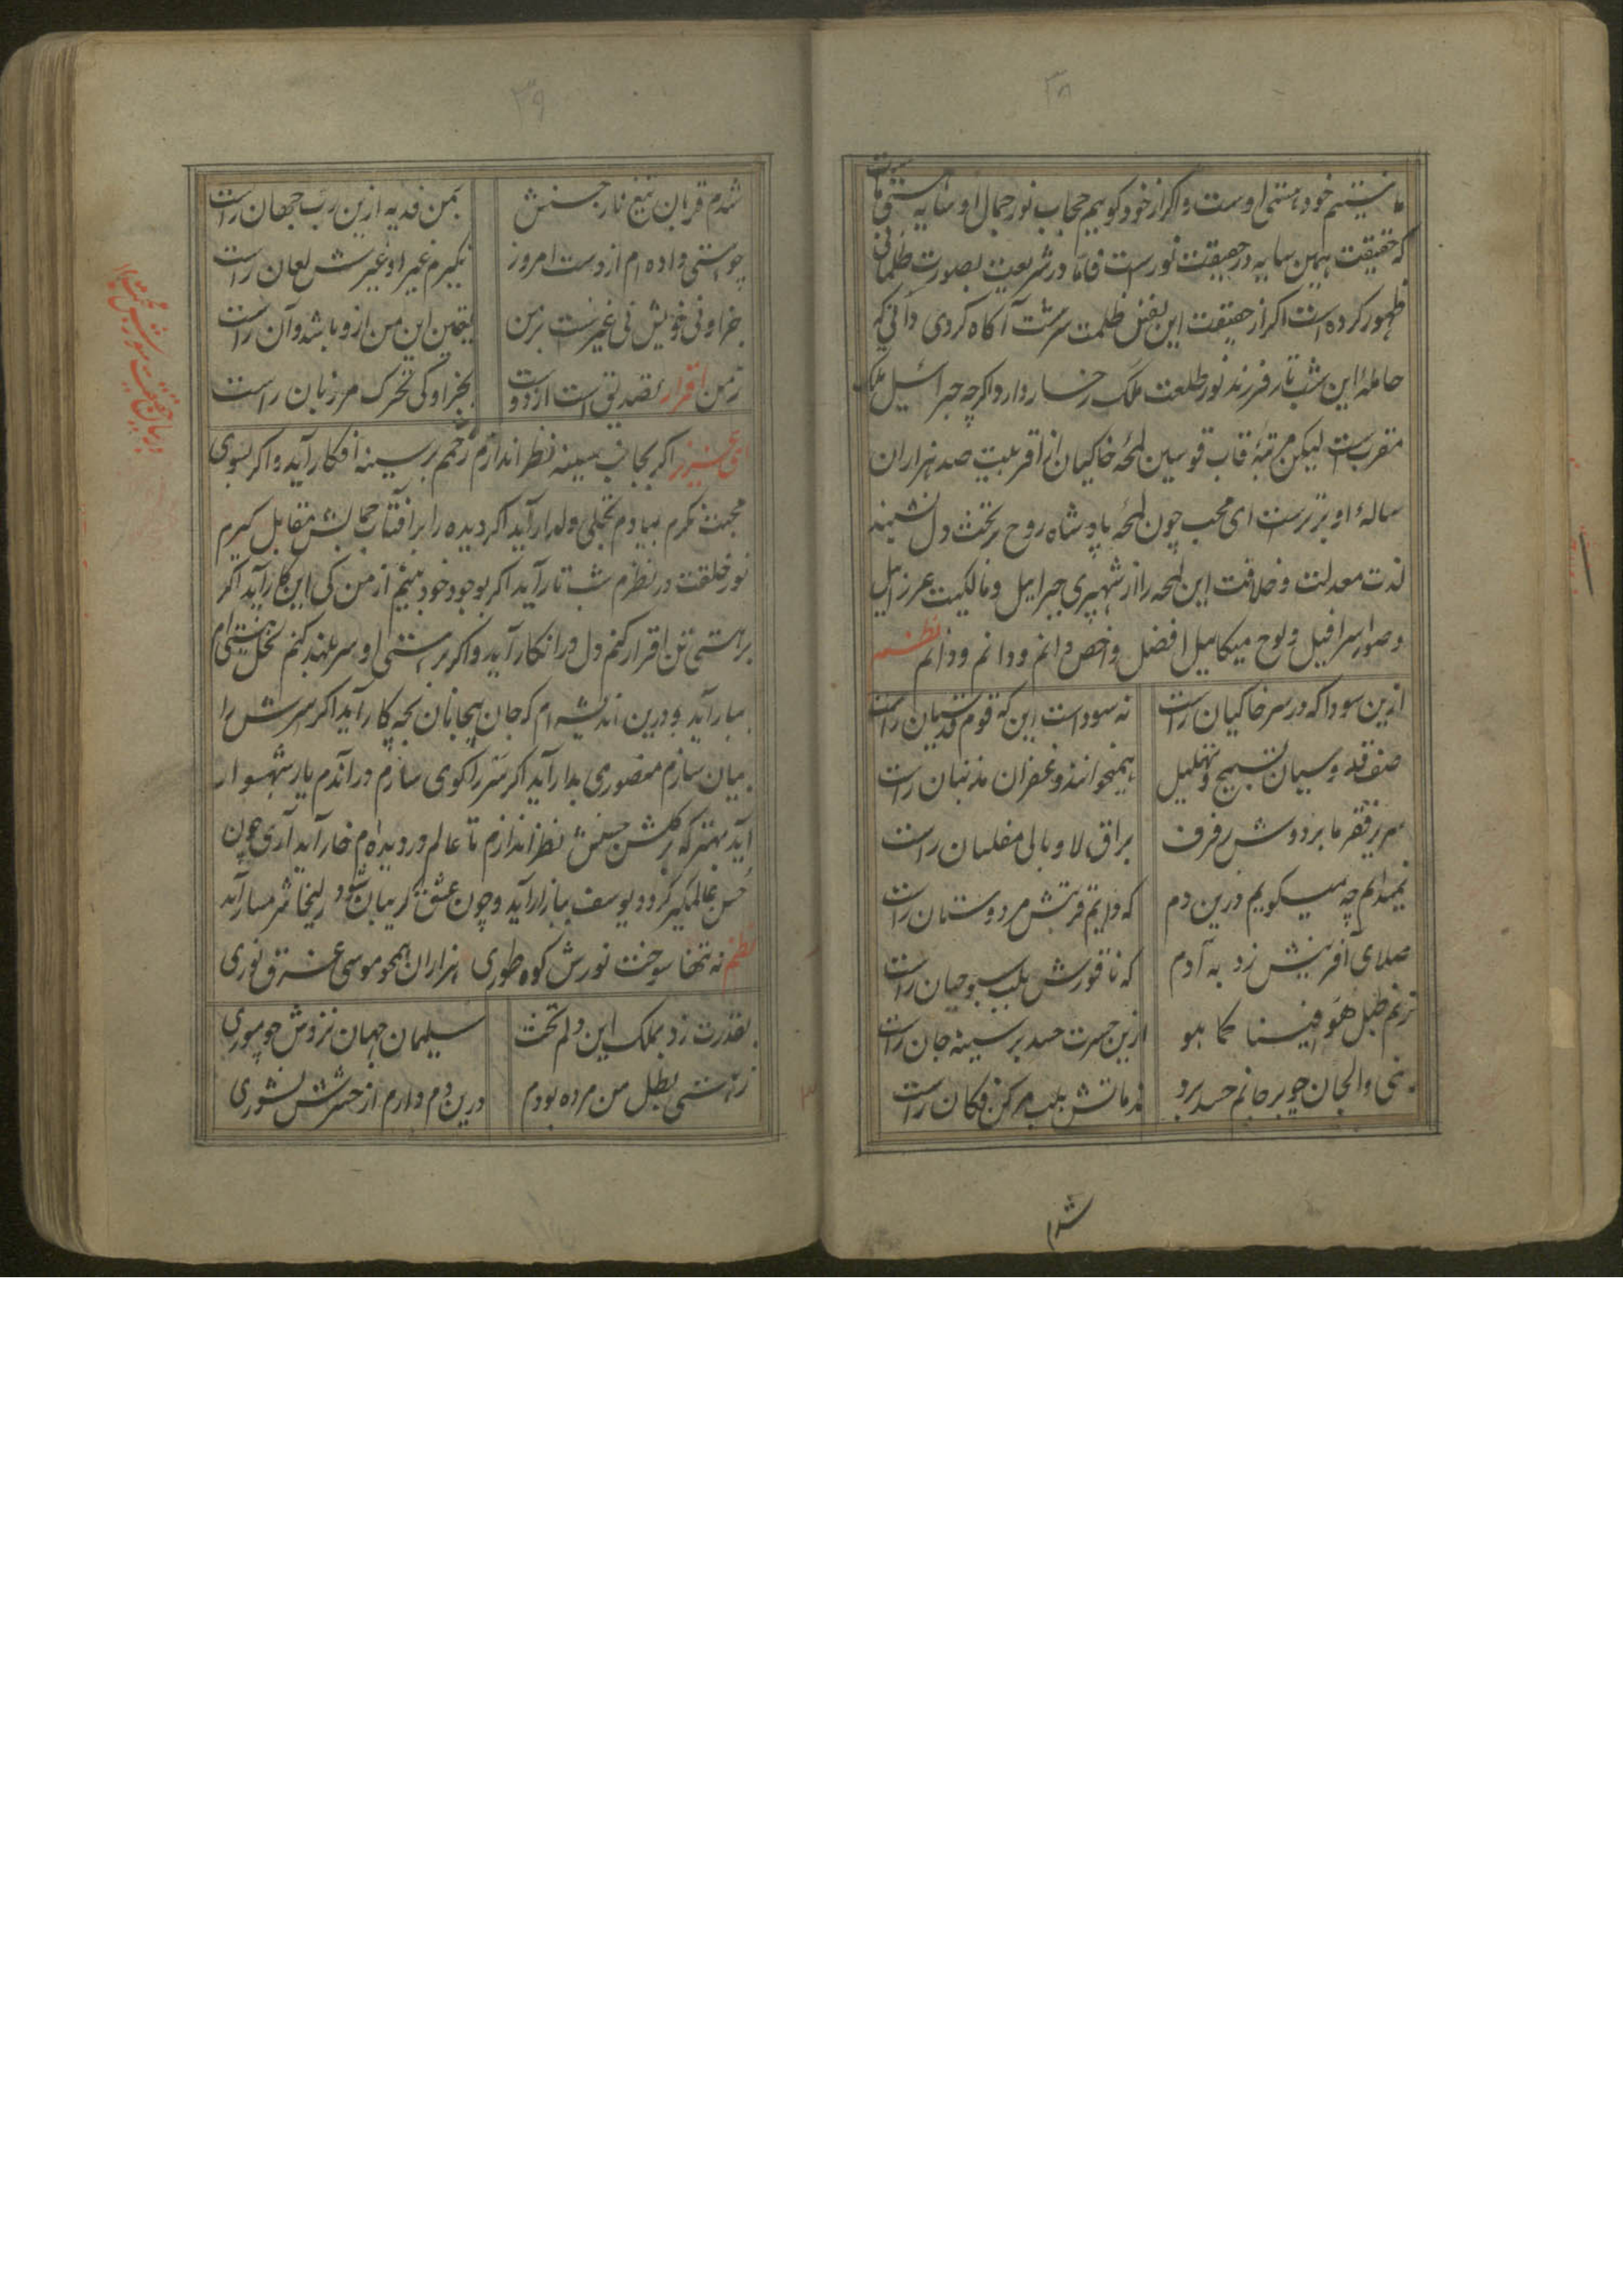 ۳۸
ما نیستیم خود هستی اوست واکر از خود کوییم حجاب نور جمال او سایه هستی ما
که حقیقت همین سایه در حقیقت نورست فاما در شریعت بصورت ظلمانی
ظهور کرده است اکر از حقیقت این نفس ظلمت سرشت آکاه کردی دانی که
حاملهٔ این شب تار فرزند نور طلعت ملک رخسار دارد اکرچه جبرائیل ملک
مقربست لیکن مرتبهٔ قاب قوسین لمحهٔ خاکیان از اقربیت صد هزاران
سالهٔ او برترست ای محب چون لمحهٔ پادشاه روح بر تخت دل نشیند
لذت معدلت و خلافت این لمحه را از شهپری جبرایل و مالکیت عزرایل
و صور اسرافیل و لوح میکاییل افضل و اخص دانم و دانم و دانم نظم
ازین سودا که در سر خاکیان راست نه سوداست این که قوم قدسیان راست
صف قدوسیان تسبیح و تهلیل همیخوانند و غفران مذنبان راست
سریر فقر ما بر دوش رفرف براق لا وبالی مفلسان راست
نمیدانم چه میکویم درین دم که دایم قربتش مر دوستان راست
صلای آفرینش زد به آدم که ناقورش بلب سبوحیان راست
ترنم طبل هو فینا کما هو ازین حسرت حسد بر سینه جان راست
بنی والجان چو بر جانم حسد برد ندماتش بلب مر کن فکان راست
شدم
۳۹
شدم قربان تیغ ناز حسنش بمن فدیه ازین رب جهان راست
چو استی داده ام از دست امروز نکیرم غیر او غیرش لعان راست
جز او نی خویش نی غیرست بر من یقین این من ازو باشد و آن راست
ز من اقرار تصدیق است از دوست بجز او کی تحرک مر زبان راست
ای عزیز اکر بجانب سینه نظر اندازم زخمم بر سینه افکار آید و اکر بسوی
محبت نکرم بیادم تجلی دلدار آید اکر دیده را بر آفتاب جمالش مقابل کیرم
نور خلقت در نظرم شب تار آید اکر بوجود خود بینم از من کی این کار آید اکر
بر هستی تن اقرار کنم دل در انکار آید و اکر بر هستی او سر بلند کنم نخل هستی ام
ببار آید و درین اندیشه ام که جان بیجانان بچه کار آید اکر سرش را
بیان سازم منصوری بدار آید اکر سر را کوی سازم در آندم یار شهسوار
آید بهتر که بر کلشن حسنش نظر اندازم تا عالم در دیده ام خار آید آری چون
حسن عالمکیر کردد یوسف ببازار آید و چون عشق کریبان شود زلیخا شرمسار آید
نظم نه تنها سوخت نورش کوه طوری هزاران همچو موسی غرق نوری
بقدرت زد بملک این دلم تخت سلیمان جهان نزدش چو موری
ز هستی بطل من مرده بودم درین دم دارم از حشرش نشوری